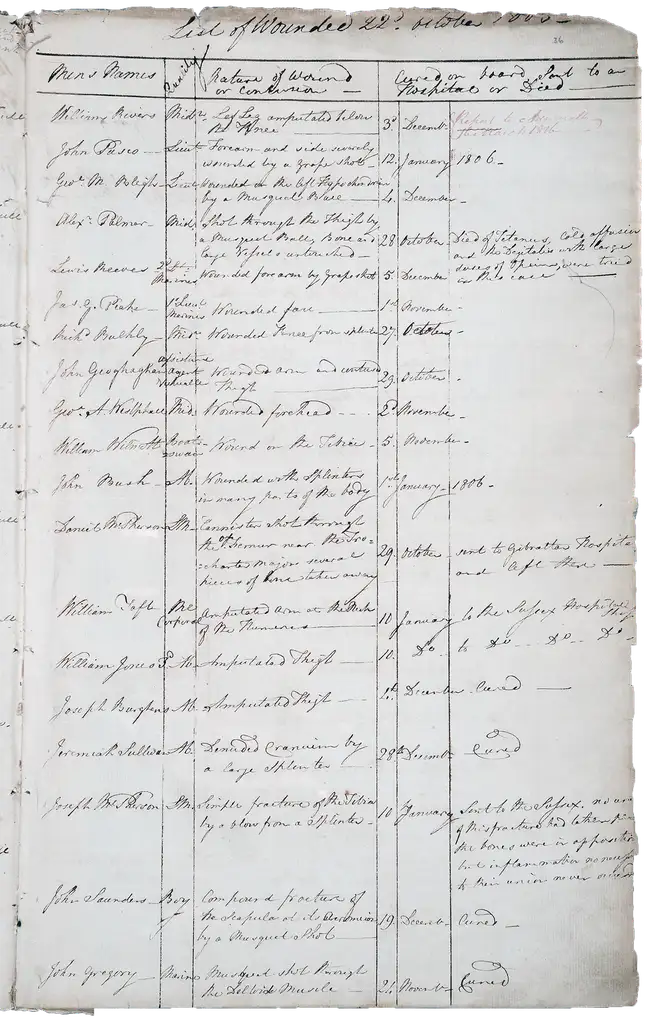 List of Wounded 22d October 1805
26
Mens Names Quality Nature of Wound or Contusion Cured on board, Sent to an Hospital or Died
William Rivers Midn. Left Leg amputated below
the Knee 3d Decemb.
John Pasco Lieut Forearm and side severely
wounded by a grape shot 12. January 1806
Geo. M. Bleigh Lieut Wounded in the left Hypochondrium
by a Musquet Ball 4 December
Alexr Palmer Mid. Shot through the Thigh by
a Musquet Ball, Bone and
large Vessels untouched 28 October Died of Tetanus, cold affusion
and the Digitalis with large
doses of Opium, were tried
in this case
Lewis Reeves 2d Lt Marines Wounded forearm by Grapeshot 5. December
Jas. G. Peake 1st Lieut Marines Wounded face 1st November
Richd Bulkly Mid. Wounded Knee from splinter 27. October
John Geoghaghan assistant agent Victualler Wounded arm and contused
Thigh 29. October
Geo. A. Westphall Mid. Wounded forehead 2d November
William Wilmott Boatswain Wound on the Tibia 5. November
John Bush Ab. Wounded with Splinters
in many parts of the body 1st January 1806
Daniel McPherson Cannister shot through
the Femur near the Tro=
chanter major several
pieces of bone taken away 29. October sent to Gibraltar Hospital
and left there
William Taft Corporal Amputated arm at the
of the Humerus 10 January to the Sussex Hospital
William Jones Ab. Amputated Thigh 10. Do to Do Do Do
Joseph Burgken Ab. Amputated Thigh 4th December Cured
Jeremiah Sullivan Ab. Denuded Cranium by
a large Splinter 28th Decemb. Cured
Joseph McPherson Simple fracture of the Tibia
by a blow from a Splinter 10 January Sent to the Sussex. no
of this fracture had taken
the bones were in apposition
but inflammation
to their union never
John Saunders Boy Compound fracture of
the Scapula at its Acromion
by a Musquet Shot 19. Decemb. Cured
John Gregory Marine Musquet shot through
the Deltoid Muscle 24 Novemb. Cured